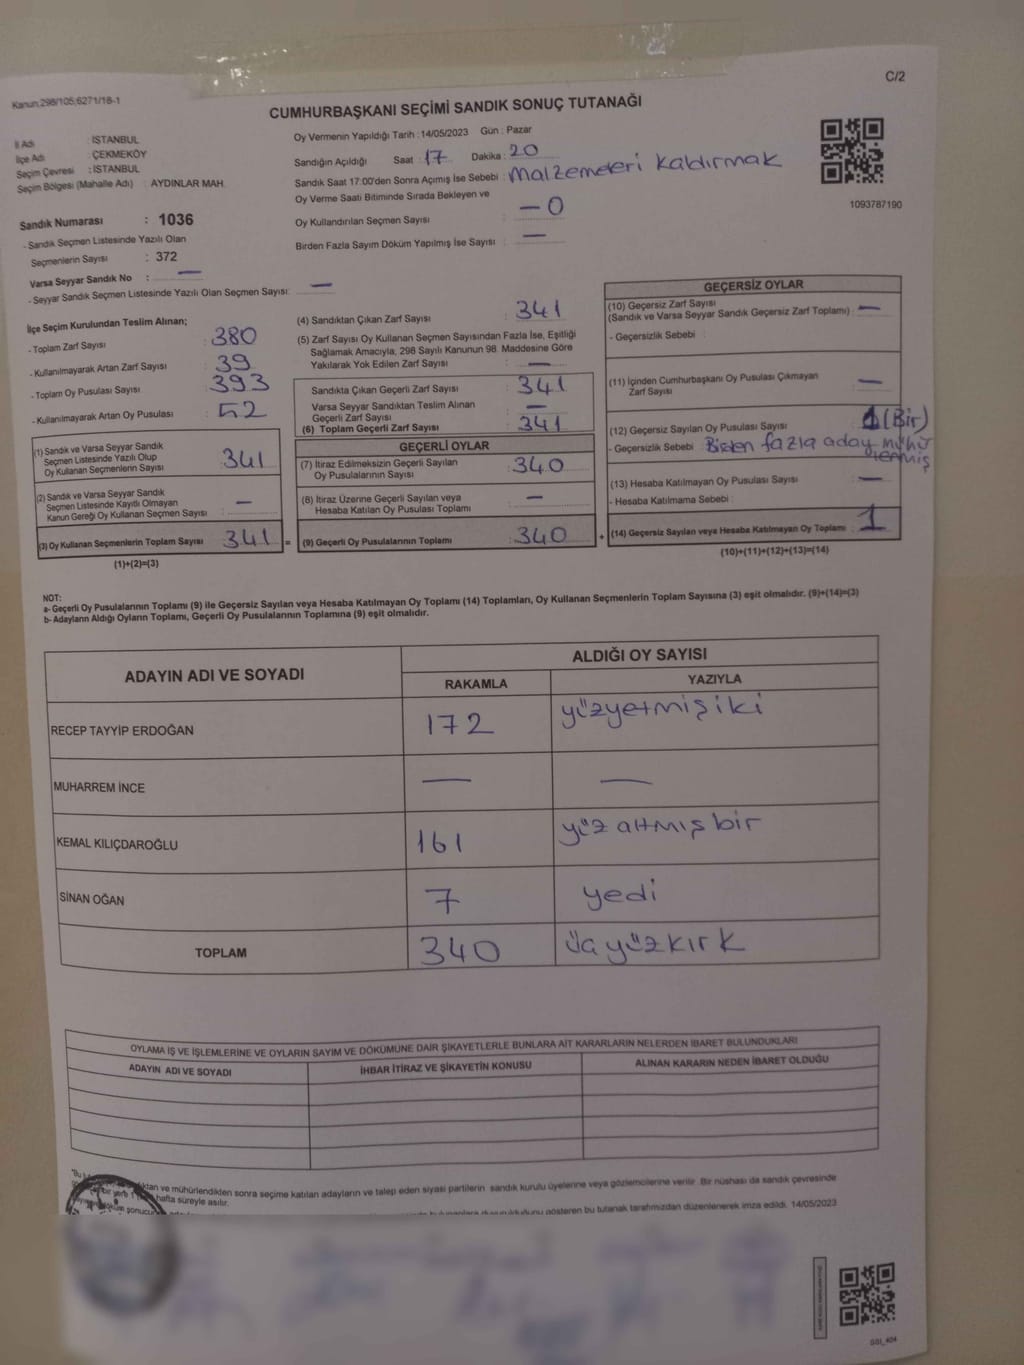 C/2
Kanun:298/105;6271/18-1
CUMHURBAŞKANI SEÇİMİ SANDIK SONUÇ TUTANAĞI
İl Adı : İSTANBUL
İlçe Adı : ÇEKMEKÖY
Seçim Çevresi : İSTANBUL
Seçim Bölgesi (Mahalle Adı) : AYDINLAR MAH.
Oy Vermenin Yapıldığı Tarih : 14/05/2023 Gün : Pazar
Sandığın Açıldığı Saat : 17 Dakika : 20
Sandık Saat 17:00'den Sonra Açımış İse Sebebi : Malzemeleri kaldırmak
Oy Verme Saati Bitiminde Sırada Bekleyen ve
Oy Kullandırılan Seçmen Sayısı : — 0
Birden Fazla Sayım Döküm Yapılmış İse Sayısı : —
1093787190
Sandık Numarası : 1036
- Sandık Seçmen Listesinde Yazılı Olan
Seçmenlerin Sayısı : 372
Varsa Seyyar Sandık No : —
- Seyyar Sandık Seçmen Listesinde Yazılı Olan Seçmen Sayısı: —
İlçe Seçim Kurulundan Teslim Alınan;
- Toplam Zarf Sayısı : 380
- Kullanılmayarak Artan Zarf Sayısı : 39
- Toplam Oy Pusulası Sayısı : 393
- Kullanılmayarak Artan Oy Pusulası : 52
(1) Sandık ve Varsa Seyyar Sandık
Seçmen Listesinde Yazılı Olup
Oy Kullanan Seçmenlerin Sayısı : 341
(2) Sandık ve Varsa Seyyar Sandık
Seçmen Listesinde Kayıtlı Olmayan
Kanun Gereği Oy Kullanan Seçmen Sayısı : —
(3) Oy Kullanan Seçmenlerin Toplam Sayısı : 341 =
(1)+(2)=(3)
(4) Sandıktan Çıkan Zarf Sayısı : 341
(5) Zarf Sayısı Oy Kullanan Seçmen Sayısından Fazla İse, Eşitliği
Sağlamak Amacıyla, 298 Sayılı Kanunun 98. Maddesine Göre
Yakılarak Yok Edilen Zarf Sayısı : —
Sandıkta Çıkan Geçerli Zarf Sayısı : 341
Varsa Seyyar Sandıktan Teslim Alınan
Geçerli Zarf Sayısı : —
(6) Toplam Geçerli Zarf Sayısı : 341
GEÇERLİ OYLAR
(7) İtiraz Edilmeksizin Geçerli Sayılan
Oy Pusulalarının Sayısı : 340
(8) İtiraz Üzerine Geçerli Sayılan veya
Hesaba Katılan Oy Pusulası Toplamı : —
(9) Geçerli Oy Pusulalarının Toplamı : 340 +
GEÇERSİZ OYLAR
(10) Geçersiz Zarf Sayısı
(Sandık ve Varsa Seyyar Sandık Geçersiz Zarf Toplamı) : —
- Geçersizlik Sebebi :
(11) İçinden Cumhurbaşkanı Oy Pusulası Çıkmayan
Zarf Sayısı : —
(12) Geçersiz Sayılan Oy Pusulası Sayısı : 1 (Bir)
- Geçersizlik Sebebi : Birden fazla aday mühür
lenmiş
(13) Hesaba Katılmayan Oy Pusulası Sayısı : —
- Hesaba Katılmama Sebebi :
(14) Geçersiz Sayılan veya Hesaba Katılmayan Oy Toplamı : 1
(10)+(11)+(12)+(13)=(14)
NOT:
a- Geçerli Oy Pusulalarının Toplamı (9) ile Geçersiz Sayılan veya Hesaba Katılmayan Oy Toplamı (14) Toplamları, Oy Kullanan Seçmenlerin Toplam Sayısına (3) eşit olmalıdır. (9)+(14)=(3)
b- Adayların Aldığı Oyların Toplamı, Geçerli Oy Pusulalarının Toplamına (9) eşit olmalıdır.
ADAYIN ADI VE SOYADI
ALDIĞI OY SAYISI
RAKAMLA YAZIYLA
RECEP TAYYİP ERDOĞAN 172 yüzyetmişiki
MUHARREM İNCE — —
KEMAL KILIÇDAROĞLU 161 yüz altmış bir
SİNAN OĞAN 7 yedi
TOPLAM 340 üç yüz kırk
OYLAMA İŞ VE İŞLEMLERİNE VE OYLARIN SAYIM VE DÖKÜMÜNE DAİR ŞİKAYETLERLE BUNLARA AİT KARARLARIN NELERDEN İBARET BULUNDUKLARI
ADAYIN ADI VE SOYADI İHBAR İTİRAZ VE ŞİKAYETİN KONUSU ALINAN KARARIN NEDEN İBARET OLDUĞU
ve mühürlendikten sonra seçime katılan adayların ve talep eden siyasi partilerin sandık kurulu üyelerine veya gözlemcilerine verilir. Bir nüshası da sandık çevresinde
hafta süreyle asılır.
gösteren bu tutanak tarafımızdan düzenlenerek imza edildi. 14/05/2023